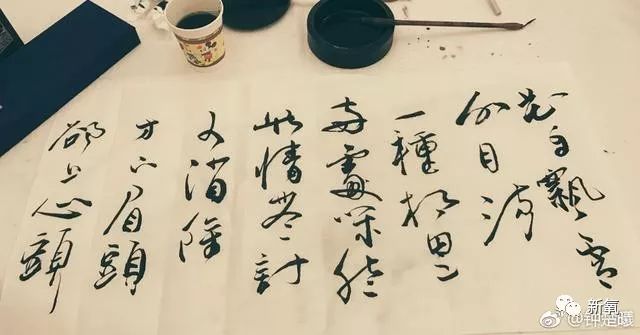 花自飄零
水自流
一種相思
兩處閑愁
此情無計
可消除
才下眉頭
卻上心頭
新氧
@钟楚曦